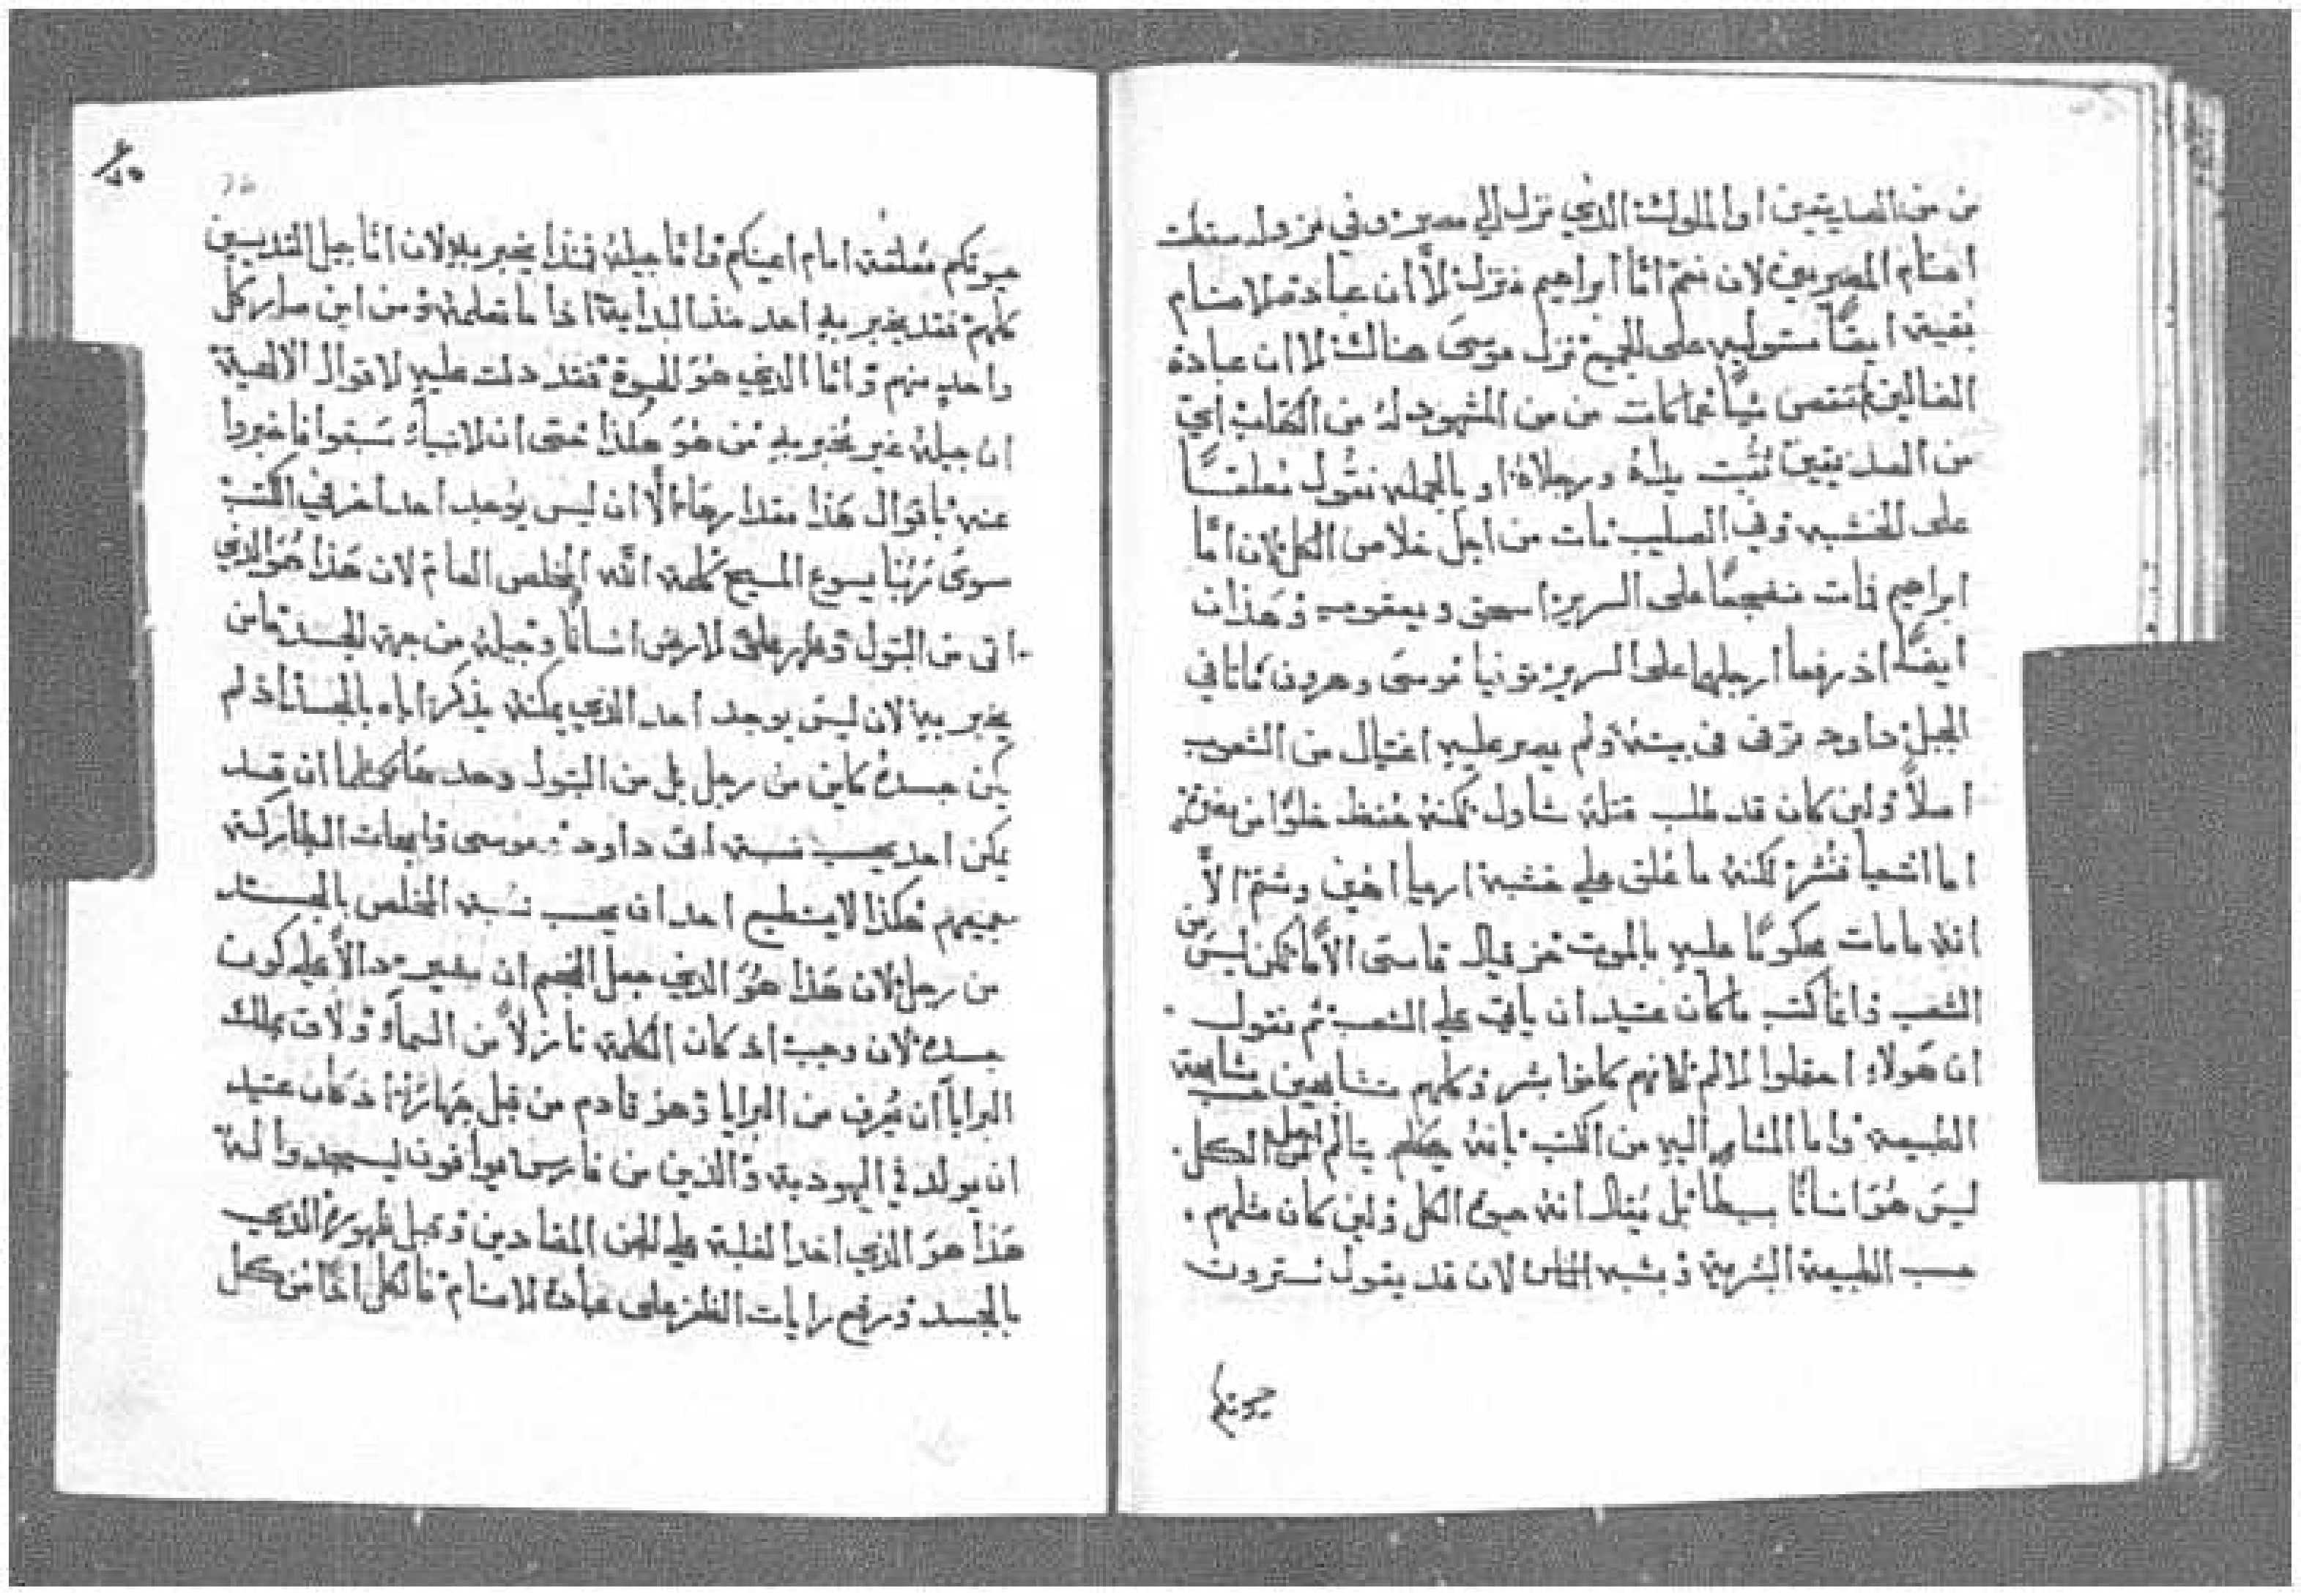 من من الصديقين او الملوك الذي نزل الي مصر وفي نزوله سقطت
اصنام المصريين لان نعم اما ابراهيم فنزل الا ان عبادة الاصنام
بقية ايضًا مستوليه على الجميع نزل موسى هناك الا ان عبادة
الضالين شيًا كانت من من المشهود له من الكتاب اي
من الصديقين ثُقبت يداه ورجلاه او بالجمله نقول معلقًا
على الخشبه وفي الصليب مات من اجل خلاص الكل لان اما
ابراهيم فمات على السرير اسحق ويعقوب وهذان
ايضًا اذ رفعا ارجلهما على السرير توفيا موسى وهرون ماتا في
الجبل داود توفى في بيته ولم يصر عليه اغتيال من الشعوب
اصلًا ولين كان قد طلب قتله شاول لكنه حُفظ خلوًا من
اما اشعيا فنُشر لكنه ما عُلق علي خشبة ارميا اهين وشتم الاَّ
انه ما مات محكومًا عليه بالموت حزقيال قاسى الآمًا لكن ليس من
الشعب وانما كتب ما كان عتيد ان ياتي علي الشعب ثم نقول
ان هولاء احتملوا الالم فانهم كانوا بشر وكلهم متشابهين مشابهة حسب
الطبيعة واما المشار اليه من الكتب بانه يتالم الكل
ليس هو انسانًا بسيطًا بل يُقال انه حيوة الكل ولين كان مثلهم
حسب الطبيعة البشرية وبشبه الناس لان قد يقول سترون
حيوتكم
حيوتكم معلقة امام اعينكم واما جيله فمن ذا يخبر به لان اما جيل القديسين
كلهم فقد يخبر به احد منذ البداية اذا ما تعلمه ومن اين صار كل
واحد منهم واما الذي هو الحيوة فقد دلت عليه الاقوال الالهية
ان جيله غير مُخبر به من هو هكذا حتى ان الانبياء سبقوا فاخبروا
عنه باقوال هذا مقدارها الاَّ ان ليس يوجد احد اخر في الكتب
سوى ربُنا يسوع المسيح كلمة الله المخلص العام لان هذا هو الذي
اتى من البتول وظهر على الارض انسانًا وجيله من جهة الجسد
يخبر به لان ليس يوجد احد الذي يمكنه يذكر اباه بالجسد اذ لم
يكن جسده كاين من رجل بل من البتول وحدها كما ان قد
يمكن احد يحسب نسبة ابى داود موسى وابهات البطاركة
جميعهم هكذا لا يستطيع احد ان يحسب نسبة المخلص بالجسد
من رجل لان هذا هو الذي جعل النجم ان يصير دالاً علي كون
جسده لان وجب اذ كان الكلمة نازلًا من السماء ولان بملك
البرايا ان يُعرف من البرايا وهو قادم من قبل اذ كان عتيد
ان يولد في اليهودية والذين من فارس يوافون ليسجدوا له
هذا هو الذي اخذ الغلبة علي الجن المضادين وقبل ظهوره الذي
بالجسد ورفع رايات الظفر على عبادة الاصنام فالكل من كل